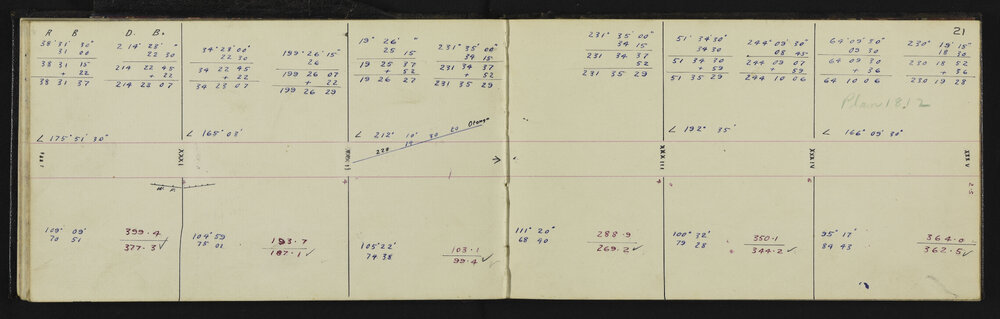 21
R B D. B.
38° 31' 30" 214° 28' "
31 00 22 30
38 31 15 214 22 45
+ 22 + 22
38 31 37 214 28 07
∠ 175° 51' 30"
109° 09'
70 51
399.4
377.3 ✓
34° 23' 00" 199° 26' 15"
22 30 26
34 22 45 199 26 07
+ 22 22
34 23 07 199 26 29
∠ 165° 03'
XXXI
104° 59
75 02
193.7
187.1 ✓
19° 26' " 231° 35' 00"
25 15 34 15
19 25 37 231 34 37
+ 52 + 52
19 26 27 231 35 29
∠ 212° 10' 30 20 Otange
228 19
105° 22'
74 38
103.1
99.4 ✓
231° 35' 00"
34 15
231 34 37
52
231 35 29
XXXIII
111° 20"
68 40
288.9
269.2 ✓
51° 34' 30 244° 09' 30"
34 30 08 45
51 34 30 244 09 07
+ 59 + 59
51 35 29 244 10 06
∠ 192° 35'
XXXIV
100° 32'
79 28
350.1
344.2 ✓
64° 09' 30" 230° 19' 15"
09 30 18 30
64 09 30 230 18 52
+ 36 + 36
64 10 06 230 19 28
Plan 1812
∠ 166° 09' 30"
XXXV
2.5
95° 17'
84 43
364.0
362.5 ✓